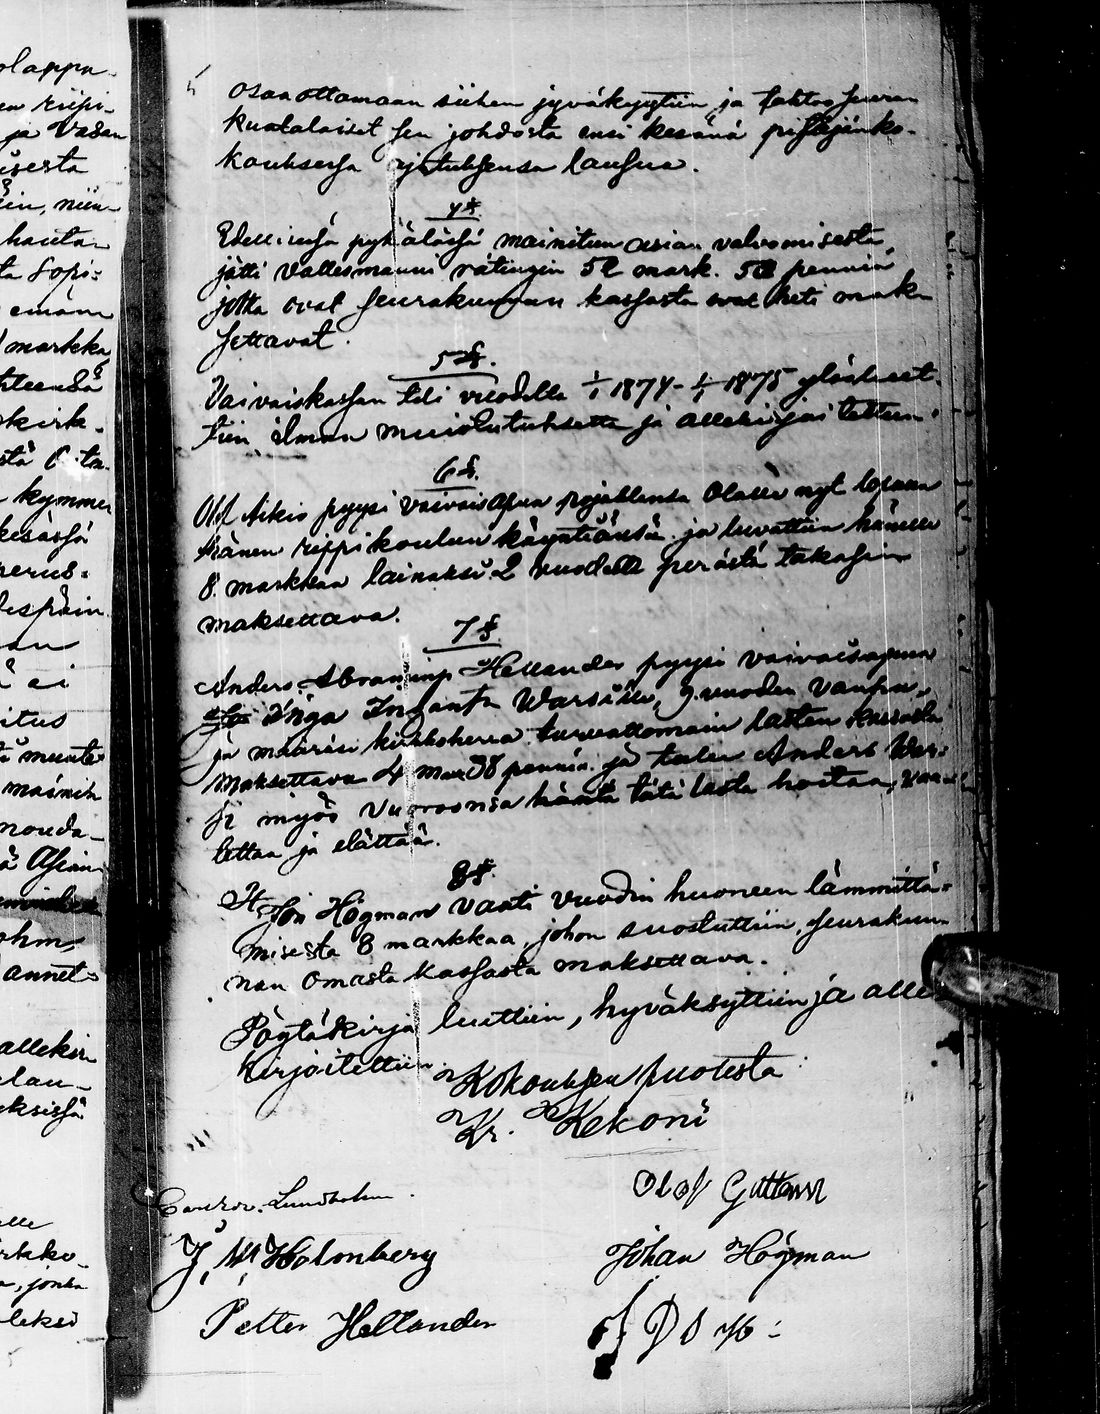 olappu-
en ripi-
ja Vadan
isesta
ein, niin-
hauta-
ta Sopi-
emäm
markka
hteensä
kirk-
kymmen
kesässä
perus-
lespäin
an
ei
itus
muute
mäinit
nouda-
Asian
ohm,
annet-
allekir
lau-
eksissä
elle
irkko-
a, jonka
leksi
osaa ottamaan siihen jyväkyytiin ja tahtoo seuran
kuulalaiset sen johdosta ensi kesänä pitäjänko-
kouksessa ajatuksensa lausua.
4 §.
Edellisessä pykälässä mainitun asian valvomisesta,
jätti Vallesmanni rätingin 52 mark. 50 penniä
jotka ovat seurakunnan kassasta ovat heti mak-
settavat.
5 §.
Vaivaiskassan tili vuodelta 1/1 1874 - 1/1 1875 ylöslueet-
tiin ilman muistutuksetta ja allekirjoitettiin.
6 §.
Olof Aikio pyysi vaivaisapua pojallensa Olalle nyt
hänen rippikoulun käyntiänsä ja luvattiin hänelle
8. markkaa lainaksi 2 vuodelta perästä takasin
maksettava.
7 §
Anders Abraminp. Hellander pyysi vaivaisapua
Inga Warsille, 9. vuoden vanha,
ja määräsi kirkkoherra turvattomain lasten kassasta
maksettava 4 mar 38 penniä. ja tulee Anders War-
si myös vuoroonsa häntä tätä lasta hoitaa, vaa-
tettaa ja elättää.
8 §.
H. Joh Högman vaati Vuodin huoneen lämmittä-
misestä 8 markkaa, johon suostuttiin, seurakun-
nan omasta kassasta maksettava.
Pöytäkirja luettiin, hyväksyttiin ja alle-
kirjoitettiin
Kokouksen puolesta
Kr. Kekoni
Cantor. Lundholm.
Olof Guttorm
J. W. Holmberg
Johan Högman
Petter Hellander